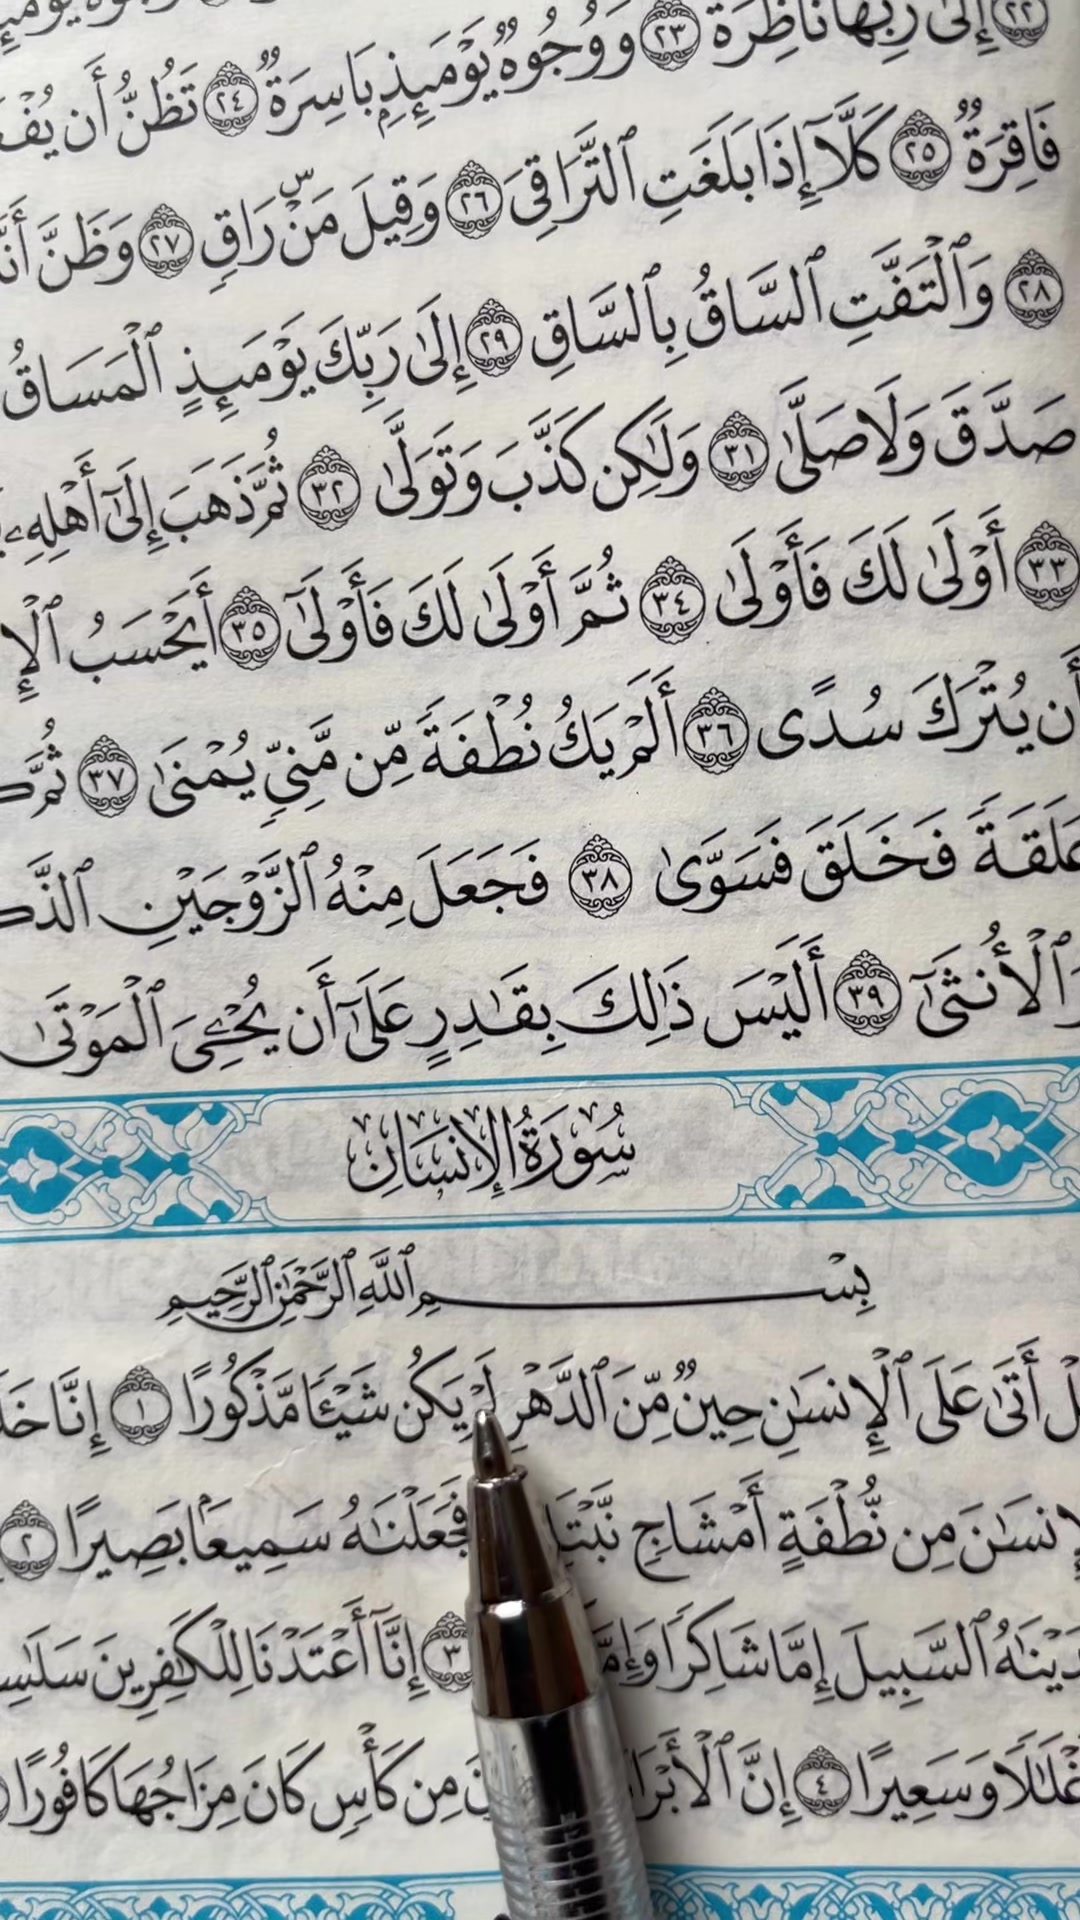 ٢٢ إِلَىٰ رَبِّهَا نَاظِرَةٌ ٢٣ وَوُجُوهٌ يَوْمَئِذٍۭ بَاسِرَةٌ ٢٤ تَظُنُّ أَن
فَاقِرَةٌ ٢٥ كَلَّآ إِذَا بَلَغَتِ ٱلتَّرَاقِىَ ٢٦ وَقِيلَ مَنْ ۜ رَاقٍ ٢٧ وَظَنَّ
٢٨ وَٱلْتَفَّتِ ٱلسَّاقُ بِٱلسَّاقِ ٢٩ إِلَىٰ رَبِّكَ يَوْمَئِذٍ ٱلْمَسَاقُ
صَدَّقَ وَلَا صَلَّىٰ ٣١ وَلَـٰكِن كَذَّبَ وَتَوَلَّىٰ ٣٢ ثُمَّ ذَهَبَ إِلَىٰٓ أَهْلِهِۦ
٣٣ أَوْلَىٰ لَكَ فَأَوْلَىٰ ٣٤ ثُمَّ أَوْلَىٰ لَكَ فَأَوْلَىٰٓ ٣٥ أَيَحْسَبُ
أَن يُتْرَكَ سُدًى ٣٦ أَلَمْ يَكُ نُطْفَةً مِّن مَّنِىٍّ يُمْنَىٰ ٣٧ ثُمَّ
عَلَقَةً فَخَلَقَ فَسَوَّىٰ ٣٨ فَجَعَلَ مِنْهُ ٱلزَّوْجَيْنِ
وَٱلْأُنثَىٰٓ ٣٩ أَلَيْسَ ذَٰلِكَ بِقَـٰدِرٍ عَلَىٰٓ أَن يُحْـِۧىَ ٱلْمَوْتَىٰ
سُورَةُ الإِنسَانِ
بِسْمِ ٱللَّهِ ٱلرَّحْمَـٰنِ ٱلرَّحِيمِ
أَتَىٰ عَلَى ٱلْإِنسَـٰنِ حِينٌ مِّنَ ٱلدَّهْرِ لَمْ يَكُن شَيْـًٔا مَّذْكُورًا ١ إِنَّا
مِن نُّطْفَةٍ أَمْشَاجٍ فَجَعَلْنَـٰهُ سَمِيعًۢا بَصِيرًا ٢
ٱلسَّبِيلَ إِمَّا شَاكِرًا ٣ إِنَّآ أَعْتَدْنَا لِلْكَـٰفِرِينَ
وَسَعِيرًا ٤ إِنَّ مِن كَأْسٍ كَانَ مِزَاجُهَا كَافُورًا